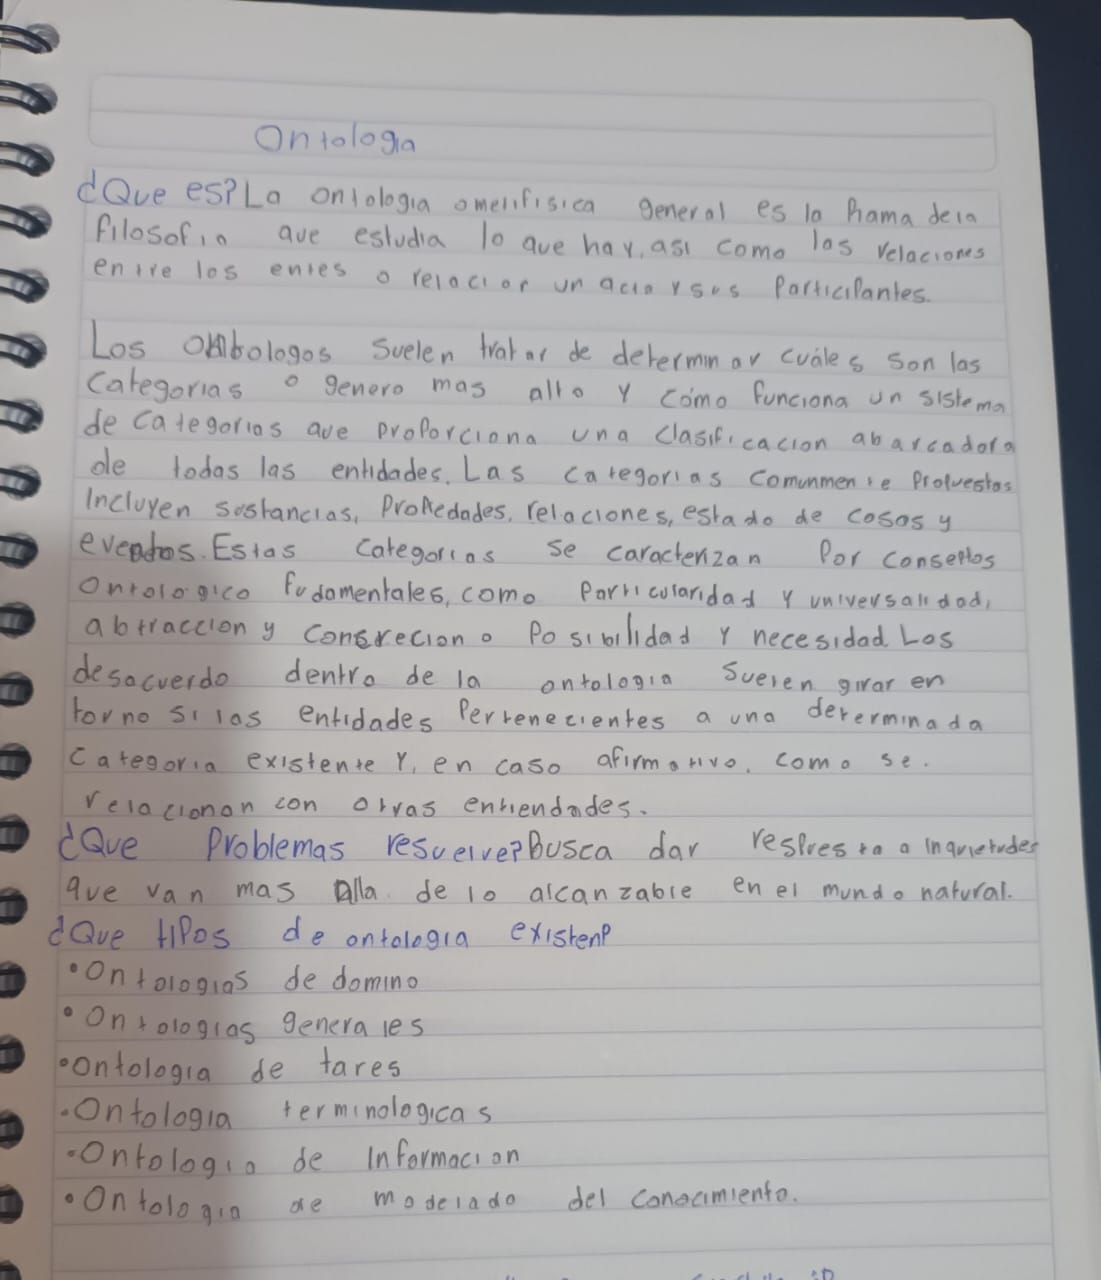 Ontologia
¿Que es? La ontologia ometifisica general es la Rama dela
filosofia que estudia lo que hay, asi como las relaciones
entre los entes o relacion un acto y sus Participantes.
Los ontologos suelen tratar de determinar cuáles son las
Categorias o genero mas alto y cómo funciona un sistema
de categorias que proporciona una clasificacion abarcadora
de todas las entidades. Las categorias comunmente Proluestas
Incluyen sustancias, Propiedades, relaciones, estado de cosas y
eventos. Estas categorias se caracterizan Por conseptos
ontologico fudamentales, como Particularidad y universalidad,
abtraccion y Consrecion o Posibilidad y necesidad Los
desacuerdo dentro de la ontologia Suelen girar en
torno si las entidades Pertenecientes a una determinada
Categoria existente Y, en caso afirmativo. como se.
relacionan con otras entiendades.
¿Que Problemas resuelve? Busca dar respuesta a inquietudes
que van mas alla de lo alcanzable en el mundo natural.
¿Que tiPos de ontologia existen?
• Ontologias de domino
• Ontologias generales
• Ontologia de tares
• Ontologia terminologicas
• Ontologia de Informacion
• Ontologia de modelado del conocimiento.